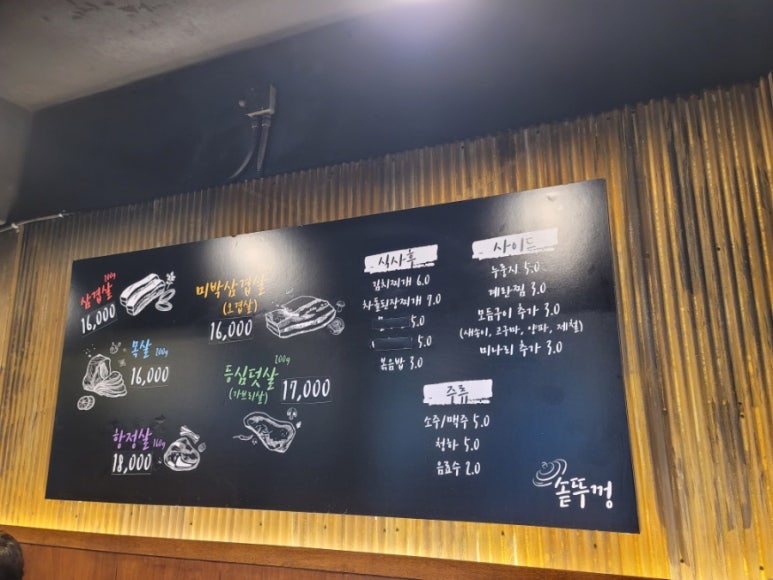 삼겹살 200g
16,000
미박삼겹살
(오겹살)
16,000
목살 200g
16,000
등심덧살 200g
(가브리살)
17,000
항정살 160g
18,000
식사후
김치찌개 6.0
차돌된장찌개 9.0
5.0
5.0
볶음밥 3.0
사이드
누룽지 5.0
계란찜 3.0
모듬구이 추가 3.0
(새송이, 고구마, 양파, 제철)
미나리 추가 3.0
주류
소주/맥주 5.0
청하 5.0
음료수 2.0
솥뚜껑